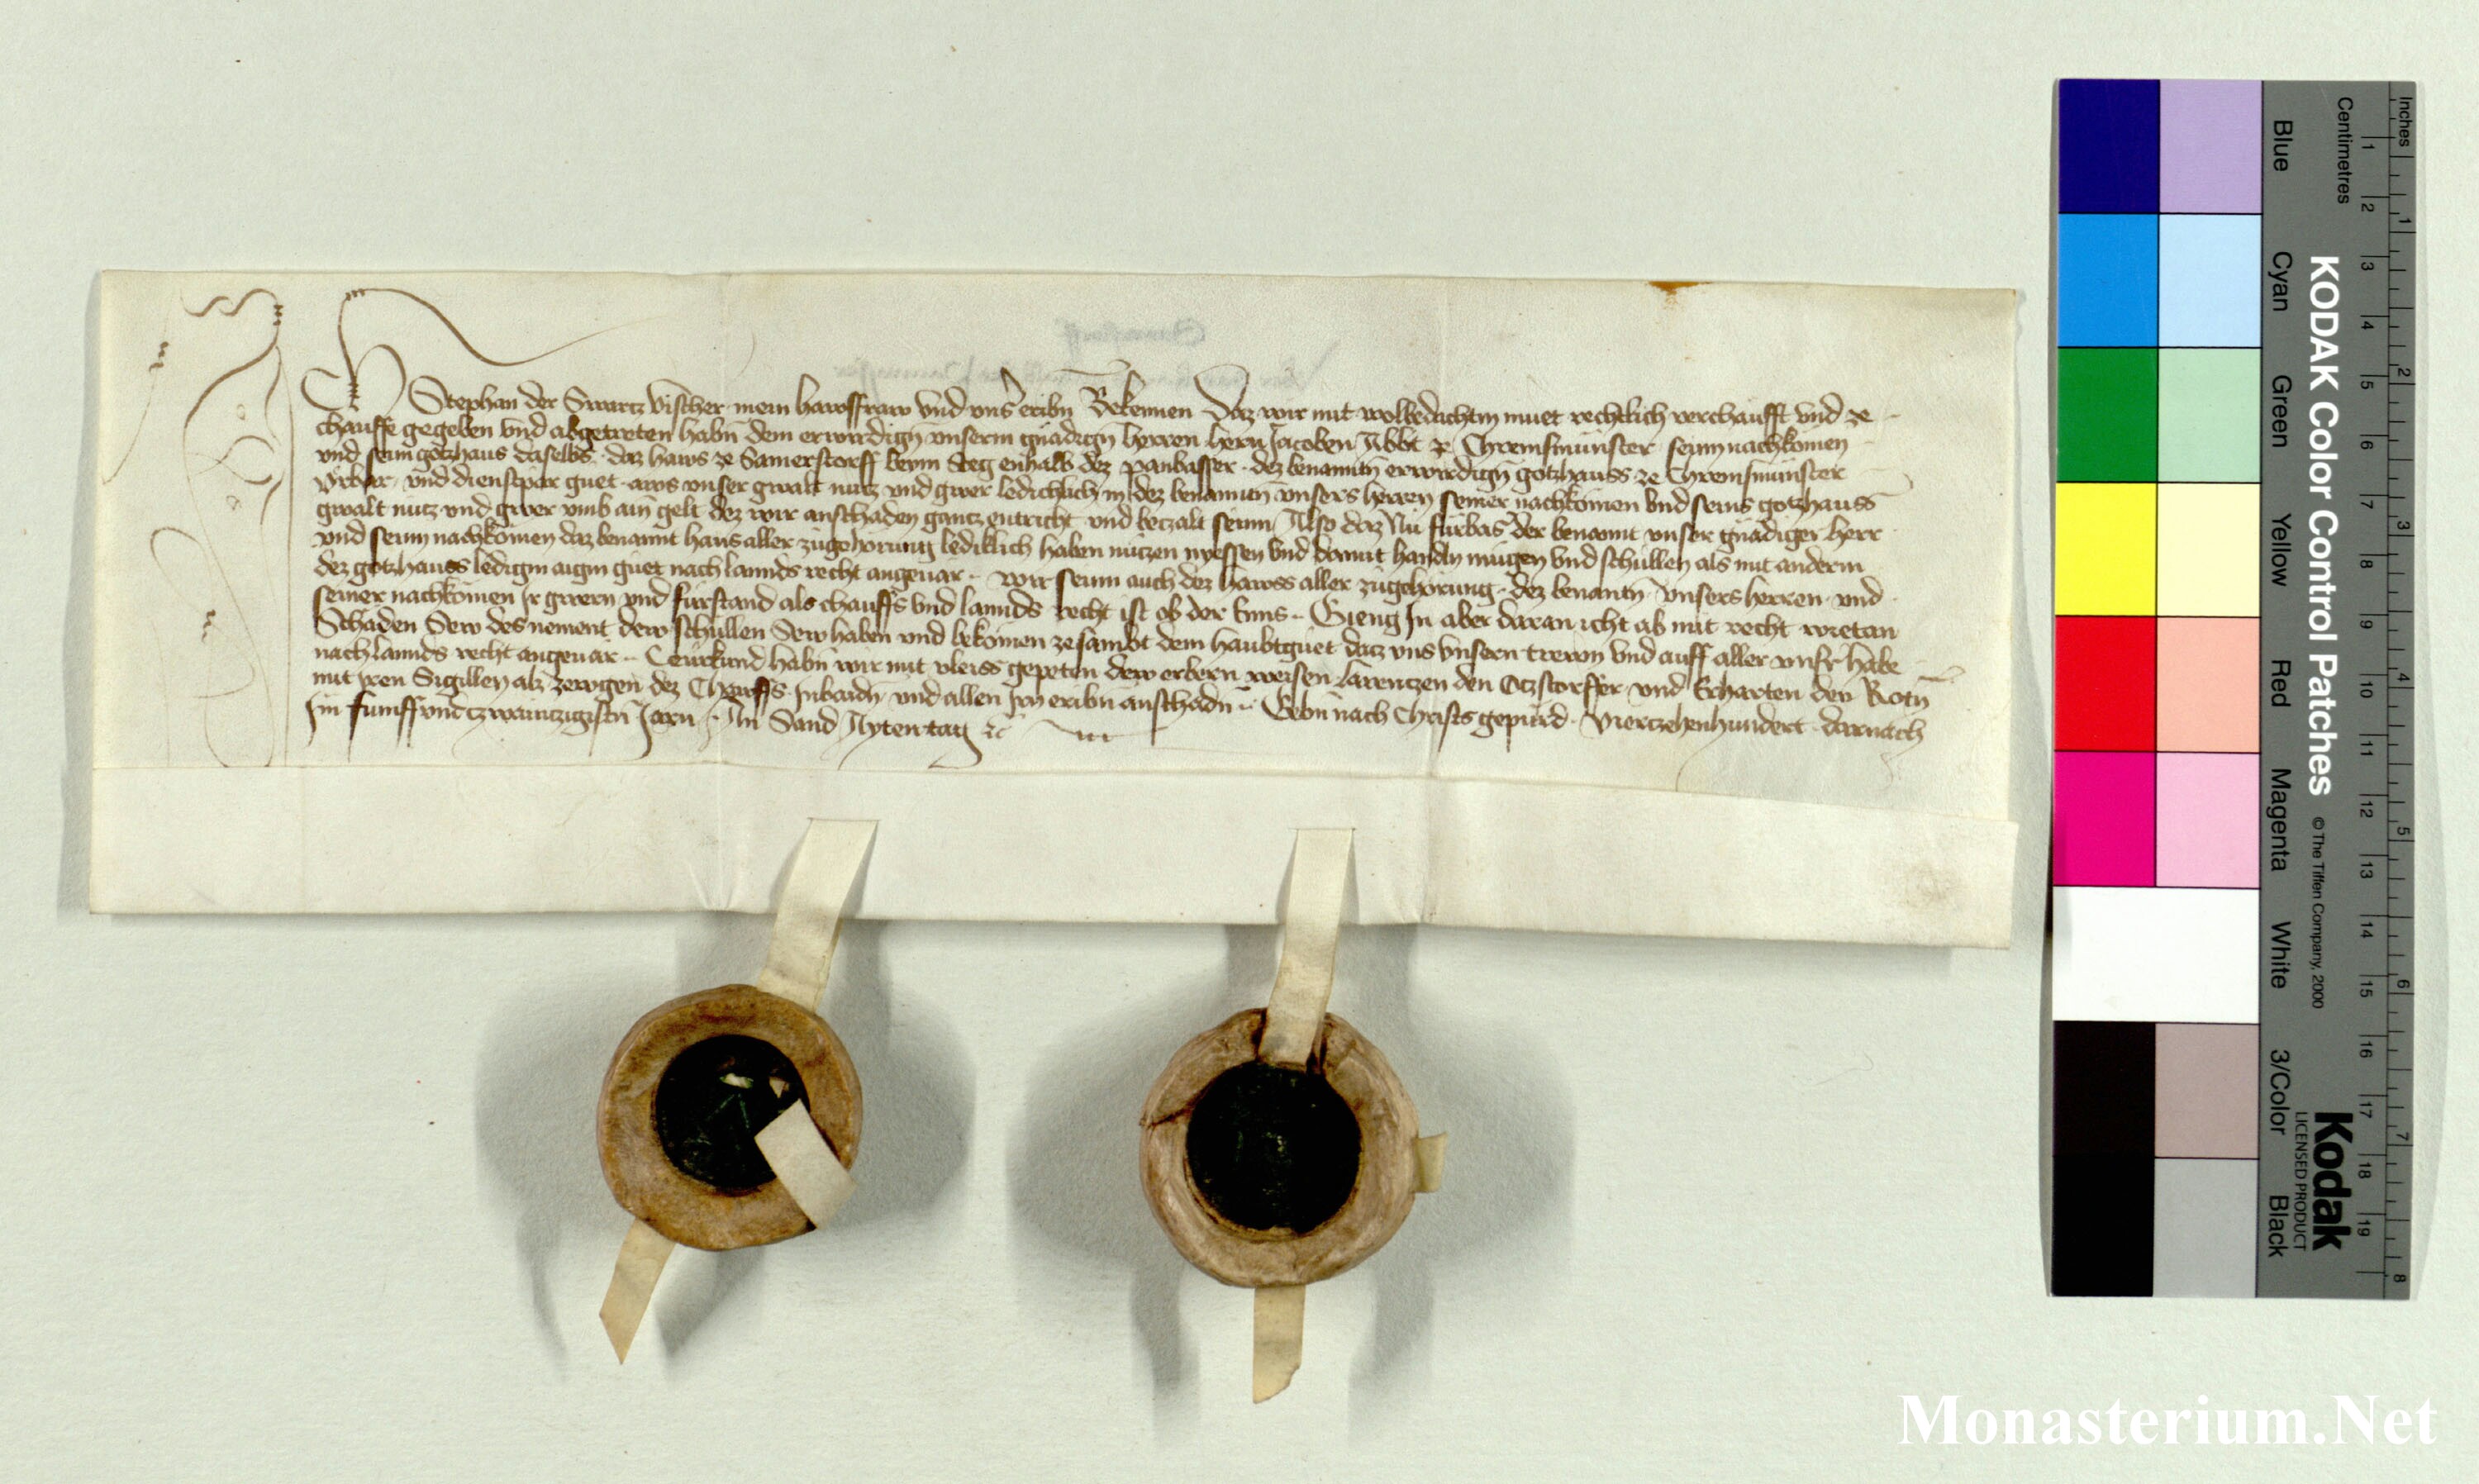 Ich Stephan der Swartz vischer mein hawsfraw vnd vnsr̄ eribn̄ Bekennen Daz wir mit wolbedachtm muet rechtlich verchaufft vnd ze
chauffe gegeben vnd abgetreten habn̄ dem erwirdign̄ vnserm gnadign̄ herren hern Jacoben Abbt ze Chremsmünster seinn nachkömen
vnd seim gotzhaus daselbs daz haws ze Samerstorff beym Steg enhalb dez panbasser dez benanntn̄ erwirdign̄ gotzhauss ze Chremsmünster
Vrbar vnd dienstper guet aws vnser gwalt nutz vnd gwer ledichlich in dez benantn̄ vnsers herren seiner nachkömen vnd seins gotzhauss
gwalt nutz vnd gwer vmb ain gelt dez wir anschaden gantz entricht vnd beczalt seinn Also daz Nu fürbas der benannt vnser gnädiger herr
vnd seinn nachkömen daz benannt haus aller zugehörung lediklich haben nützen nyessen vnd damit handln mügen vnd schüllen als mit anderm
dez gotzhauss ledigm aigm güet nach lannds recht angeuar wir seinn auch dez hawss aller zugehörung dez benantn̄ vnsers herren vnd
seiner nachkömen Ir gwern vnd fürstand als chauffs vnd lannds recht ist ob der Enns Gieng In aber daran icht ab mit recht wietan
Schaden Sew des nement dew schüllen Sew haben vnd bekömen zesambt dem haubtguet datz vns vnsern trewn vnd auff aller vnsr̄ habe
nach lannds recht angeuar Ze vrkund habn̄ wir mit vleiss gepeten dew erbern weisen Larentzen den Otzstorffer vnd Erharten den Rotn̄
mit iren Sigillen alz zewgen dez Chawffs Inbaidn vnd allen irn eribn̄ anschadn̄ Gebn̄ nach Christs gepürd Vierczehenhundert darnach
Im fumffvndczwainczigistn̄ Jarn An Sand Nyten tag etc̄
KODAK Color Control Patches
© The Tiffen Company, 2000
Kodak
LICENSED PRODUCT
Inches
1 2 3 4 5 6 7 8
Centimetres
1 2 3 4 5 6 7 8 9 10 11 12 13 14 15 16 17 18 19
Blue
Cyan
Green
Yellow
Red
Magenta
White
3/Color
Black
Monasterium.Net